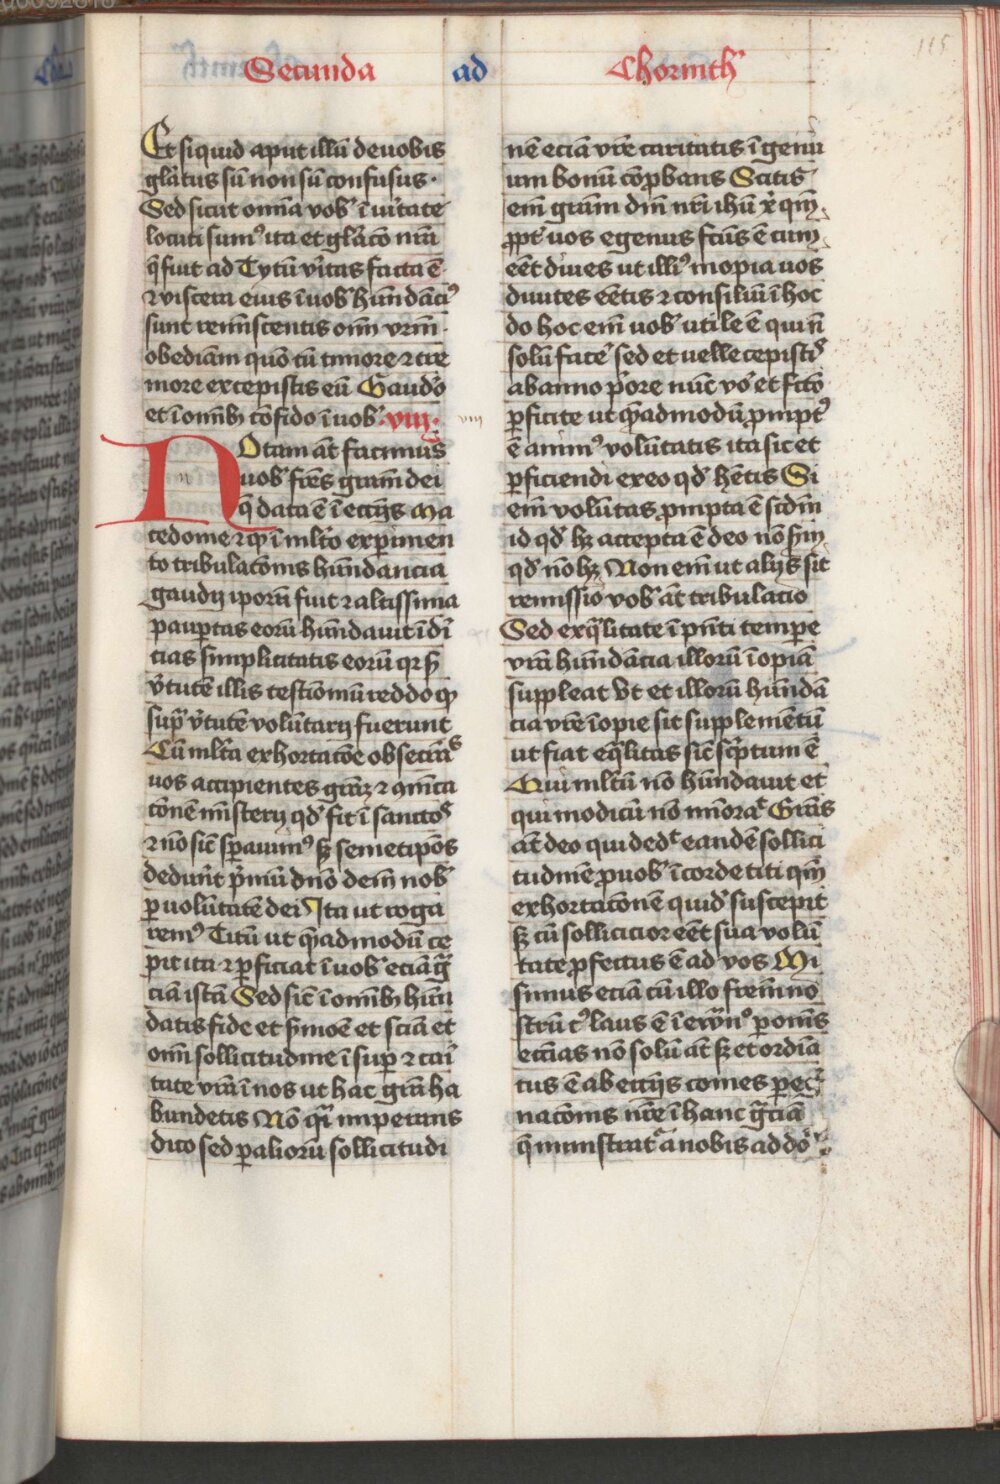 Secunda ad Chorinth'
115
Et si quid aput illū de vobis
glātus sū non sū confusus ·
Sed sicut omnia vob' ī vitate
locuti sum' ita et glāco nrā
q̄ fuit ad Tytū vitas facta ē ·
⁊ viscera eius ī uob' hūndāci'
sunt reminiscentis oīm vrm̄ ·
obediam quō cū timore ⁊ tre
more excepistis eū Gaudeo
et ī omīb cōfido ī uob' · viij ·
viij
Notam āt facimus
uob' frēs gram̄ dei
q̄ data ē ī ecc̄ijs Ma
cedonie ⁊ qp ī mlto experimen
to tribulacōnis hūndancia
gaudij ipo₂ū fuit ⁊ altissima
paup̱tas eorū hūndauit ī di
cias simplicitatis eorū qr s̄
v̄tutē illis testiomiū reddo qp
supra v̄tutē volūtarij fuerunt
Cū mlta exhortacōe obsecrās
uos accipientes grāȝ ⁊ ꝯmīca
cōnem mīsterij qd' fit ī sancto's
⁊ nō sic̄ sp̱auim' sȝ semetipōs
dedunt p̄mū dn̄o deīn nob'
p̱ volūtatē dei Ita ut roga
rem' Titū ut qᷓadmodū ce
pit ita ⁊ p̱ficiat ī uob' eciā gᷓ
ciā istā Sed sic̄ ī omīb hūn
datis fide et s̄moē et sciā et
om̄ sollicitudine īsup ⁊ cari
tate vrā ī nos ut hac grā ha
bundetis Nō qi imperans
dico sed p̱ aliorū sollicitudi
nē eciā vrē caritatis īgeniu
um bonū cōp̱bans Scitis
em̄ gram̄ dn̄i nr̄i ihū xp̄ qm̄
ꝓpt' uos egenus fc̄us ē cum
eēt diues ut illi' inopia uos
diuites eētis ⁊ consiliū ī hoc
do hoc em̄ uob' utile ē qui n̄
solū face' sed et uelle cepisti's
ab anno p̄ore nūc vo' et fc̄o
p̱ficite ut qᷓadmodū ꝓmpt'
ē anim' volūtatis ita sic et
p̱ficiendi ex eo qd' hētis Si
em̄ volūtas ꝓmpta ē scdm̄
id qd' hȝ accepta ē deo nō s̄m
qd' nō hȝ Non em̄ ut alijs sit
remissio vob' āt tribulacio
Sed ex eqᷓlitate ī pn̄ti tempe
vrā hūndācia illorū īopiā
suppleat Vt et illorū hūndā
cia vrē īopie sit supplemētū
ut fiat eqᷓlitas sic̄ scᷓptum ē
Qui mltū nō hūndauit et
qui modicū nō mīora't Grās
āt deo qui ded't eandē sollici
tudinē ꝓ uob' ī corde titi qm̄
exhortacōnē quid' suscepit
sȝ cū sollicicior eēt sua volū
tate ꝓfectus ē ad vos Mi
simus eciā cū illo frem̄ no
strū c' laus ē ī ewn̄o p̱ om̄s
eccīas nō solū āt sȝ et ordīa
tus ē ab ecc̄ijs comes pegi
nacōnis nr̄e ī hanc gᷓciā
q̄ ministrat' a nobis ad do'